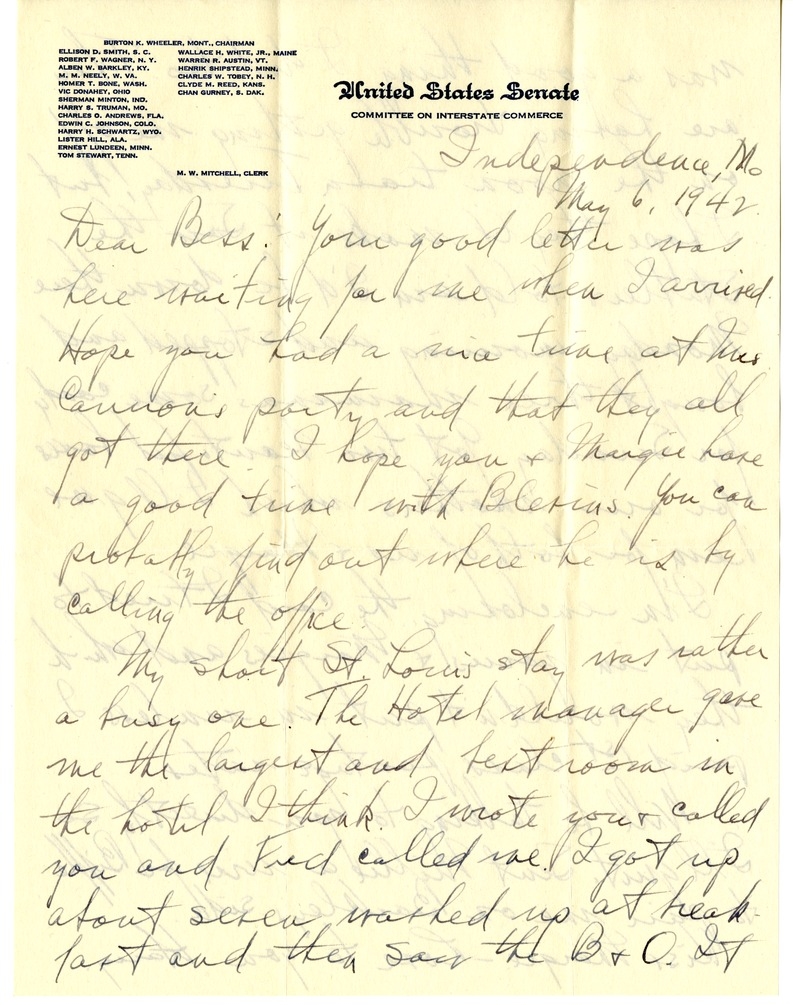 BURTON K. WHEELER, MONT., CHAIRMAN
ELLISON D. SMITH, S. C.
ROBERT F. WAGNER, N. Y.
ALBEN W. BARKLEY, KY.
M. M. NEELY, W. VA.
HOMER T. BONE, WASH.
VIC DONAHEY, OHIO
SHERMAN MINTON, IND.
HARRY S. TRUMAN, MO.
CHARLES O. ANDREWS, FLA.
EDWIN C. JOHNSON, COLO.
HARRY H. SCHWARTZ, WYO.
LISTER HILL, ALA.
ERNEST LUNDEEN, MINN.
TOM STEWART, TENN.
WALLACE H. WHITE, JR., MAINE
WARREN R. AUSTIN, VT.
HENRIK SHIPSTEAD, MINN.
CHARLES W. TOBEY, N. H.
CLYDE M. REED, KANS.
CHAN GURNEY, S. DAK.
M. W. MITCHELL, CLERK
United States Senate
COMMITTEE ON INTERSTATE COMMERCE
Independence, Mo
May 6, 1942.
Dear Bess: Your good letter was
here waiting for me when I arrived.
Hope you had a nice time at Mrs
Cannon's party and that they all
got there. I hope you & Margie have
a good time with Blevins. You can
probably find out where he is by
calling the office.
My short St. Louis stay was rather
a busy one. The Hotel manager gave
me the largest and best room in
the hotel I think. I wrote you & called
you and Fred called me. I got up
about seven washed up at break-
fast and then saw the B & O. It